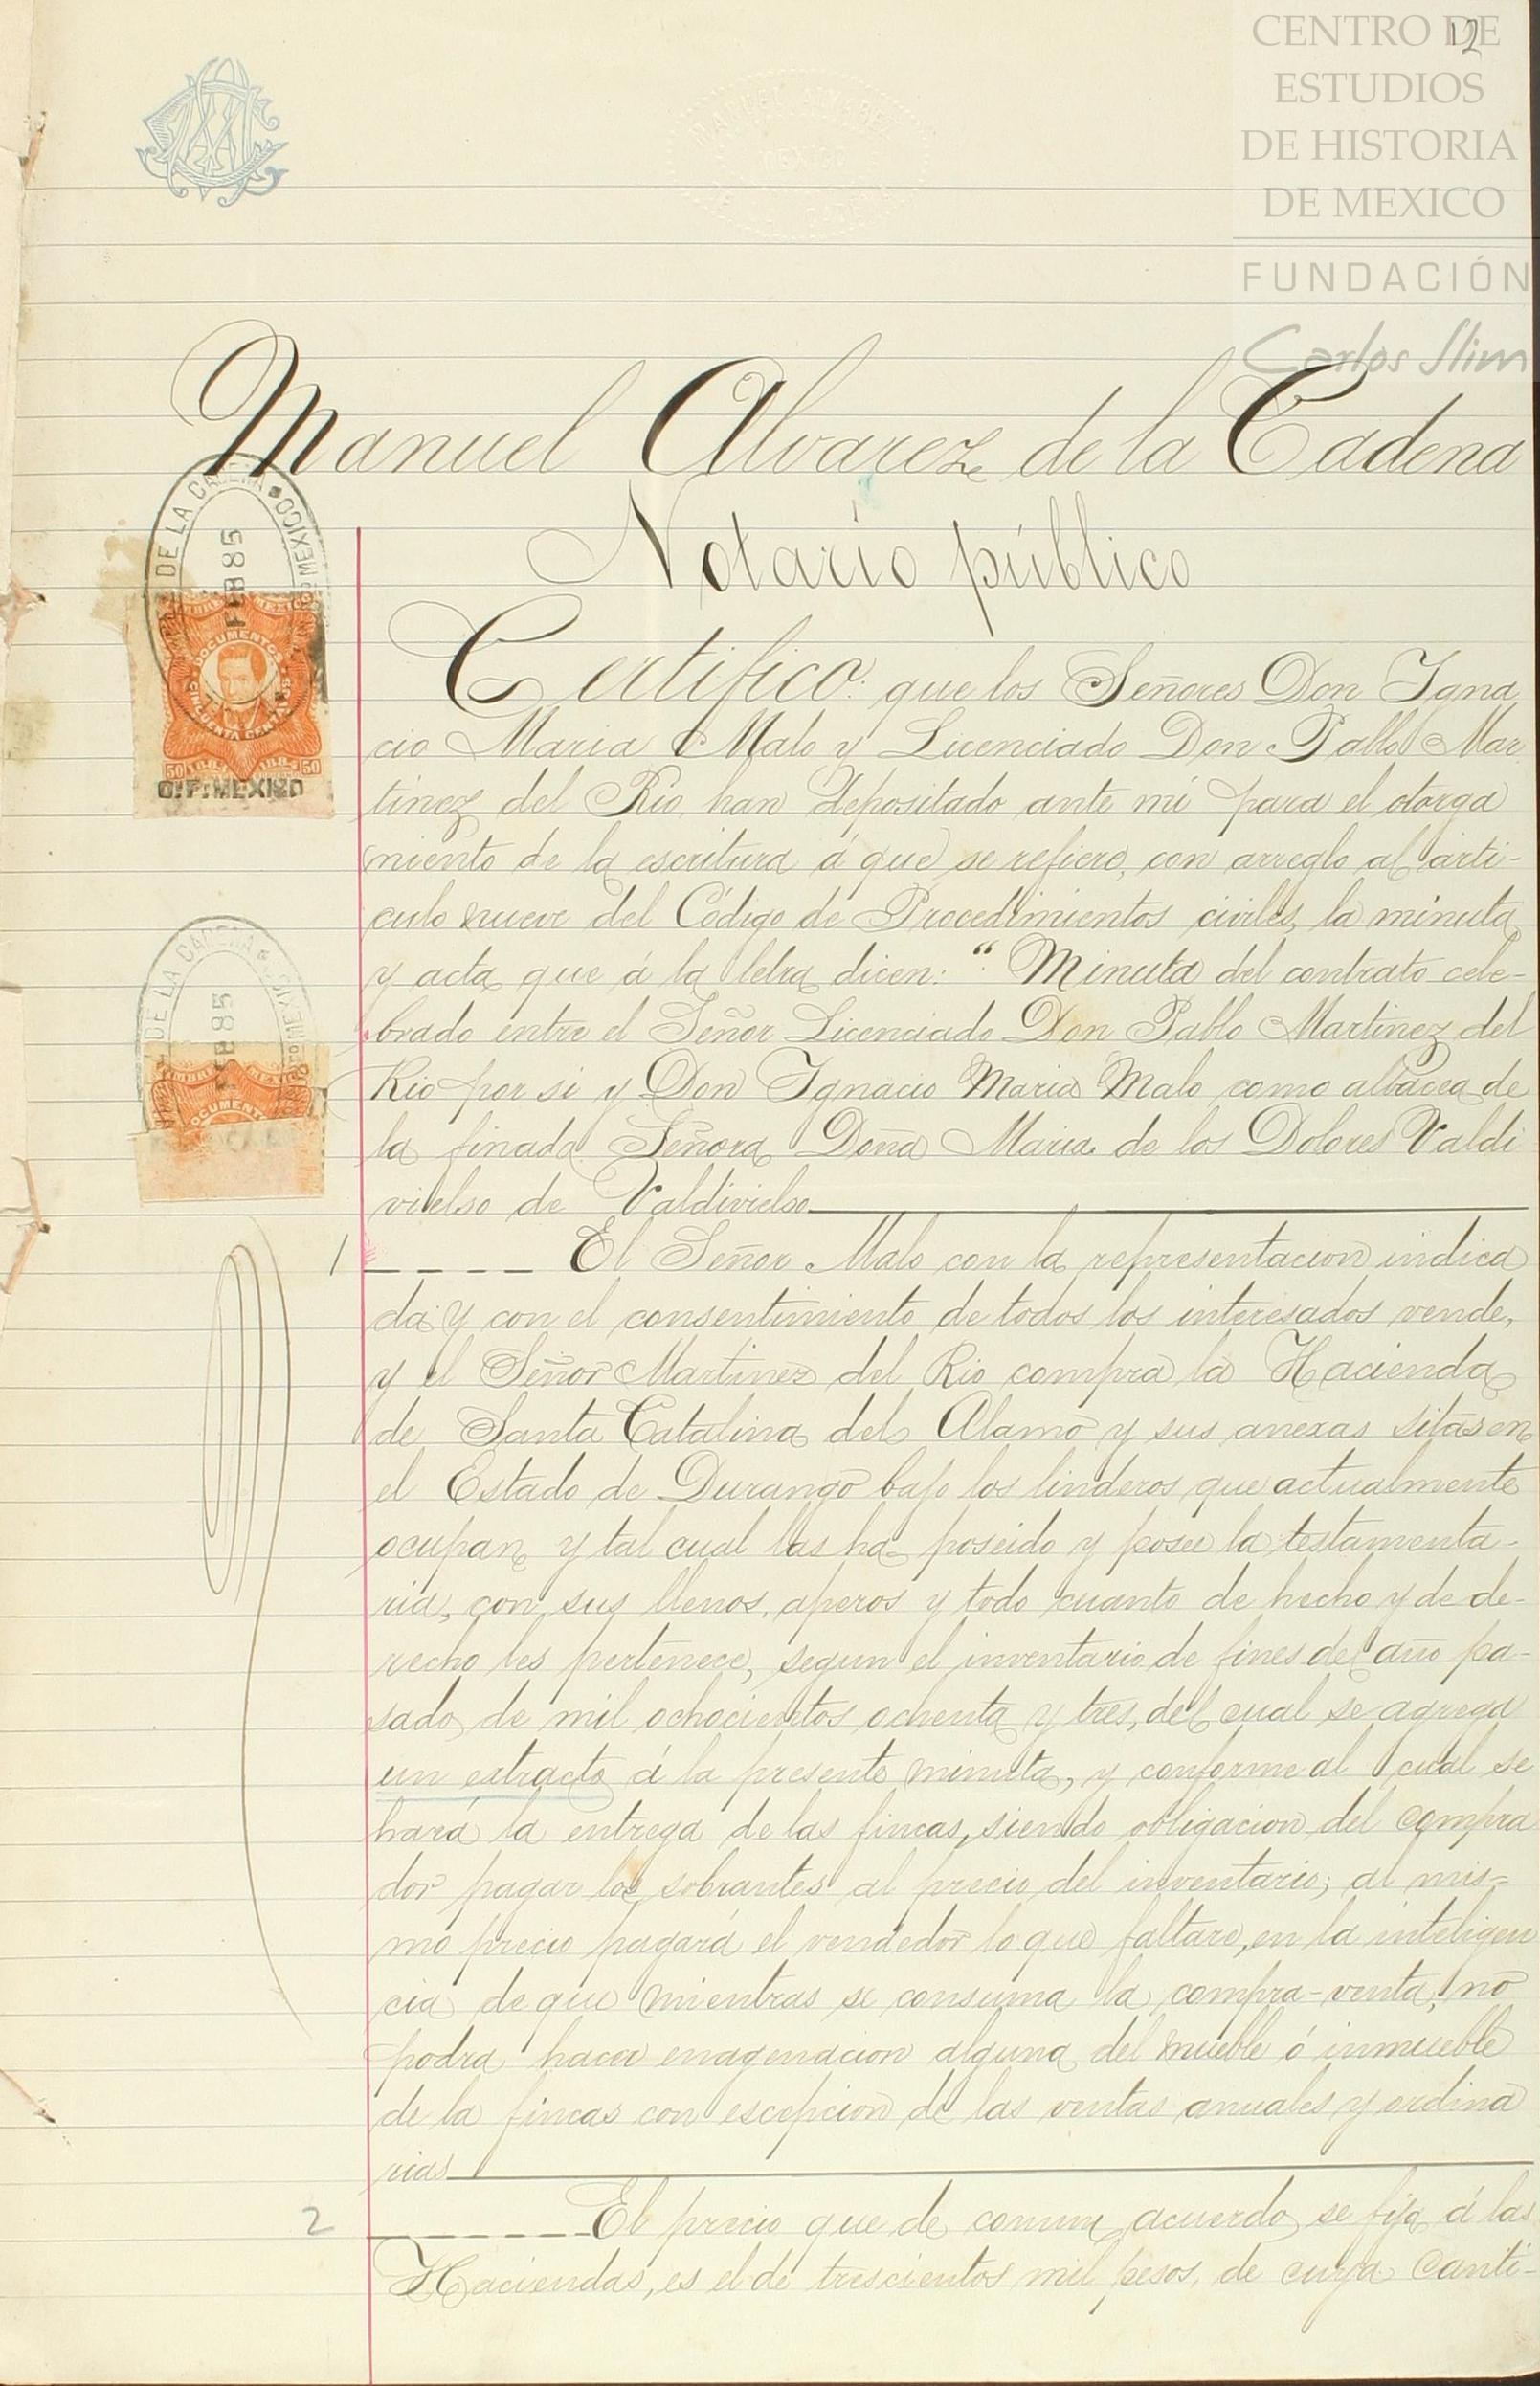 12
CENTRO DE
ESTUDIOS
DE HISTORIA
DE MEXICO
FUNDACIÓN
Carlos Slim
Manuel Alvarez de la Cadena
Notario público
DE LA CADENA MEXICO
FEB 85
DOCUMENTOS
CINCUENTA CENTAVOS
50 1884 1885 50
O.F. MEXICO
Certifico: que los Señores Don Igna
cio Maria Malo y Licenciado Don Pablo Mar
tinez del Rio, han depositado ante mí para el otorga
miento de la escritura á que se refiere, con arreglo al arti-
culo nueve del Código de Procedimientos civiles, la minuta
y acta que á la letra dicen: "Minuta del contrato cele-
brado entre el Señor Licenciado Don Pablo Martinez del
Rio por si y Don Ignacio Maria Malo como albacea de
la finada Señora Doña Maria de los Dolores Valdi
vielso de Valdivielso
DE LA CADENA
FEB 85
DOCUMENT
1 El Señor Malo con la representacion indica
da y con el consentimiento de todos los interesados vende,
y el Señor Martinez del Rio compra la Hacienda
de Santa Catalina del Alamo y sus anexas sitas en
el Estado de Durango bajo los linderos que actualmente
ocupan, y tal cual las ha poseido y posee la testamenta-
ria, con sus llenos, aperos y todo cuanto de hecho y de de-
recho les pertenece, segun el inventario de fines del año pa-
sado de mil ochocientos ochenta y tres, del cual se agrega
un extracto á la presente minuta, y conforme al cual se
hará la entrega de las fincas, siendo obligacion del compra
dor pagar los sobrantes al precio del inventario; al mis-
mo precio pagará el vendedor lo que faltare, en la inteligen
cia de que mientras se consuma la compra-venta, no
podra hacer enagenacion alguna del mueble ó inmueble
de la fincas con escepcion de las ventas anuales y ordina
rias
2 El precio que de comun acuerdo se fija á las
Haciendas, es el de trescientos mil pesos, de cuya canti-